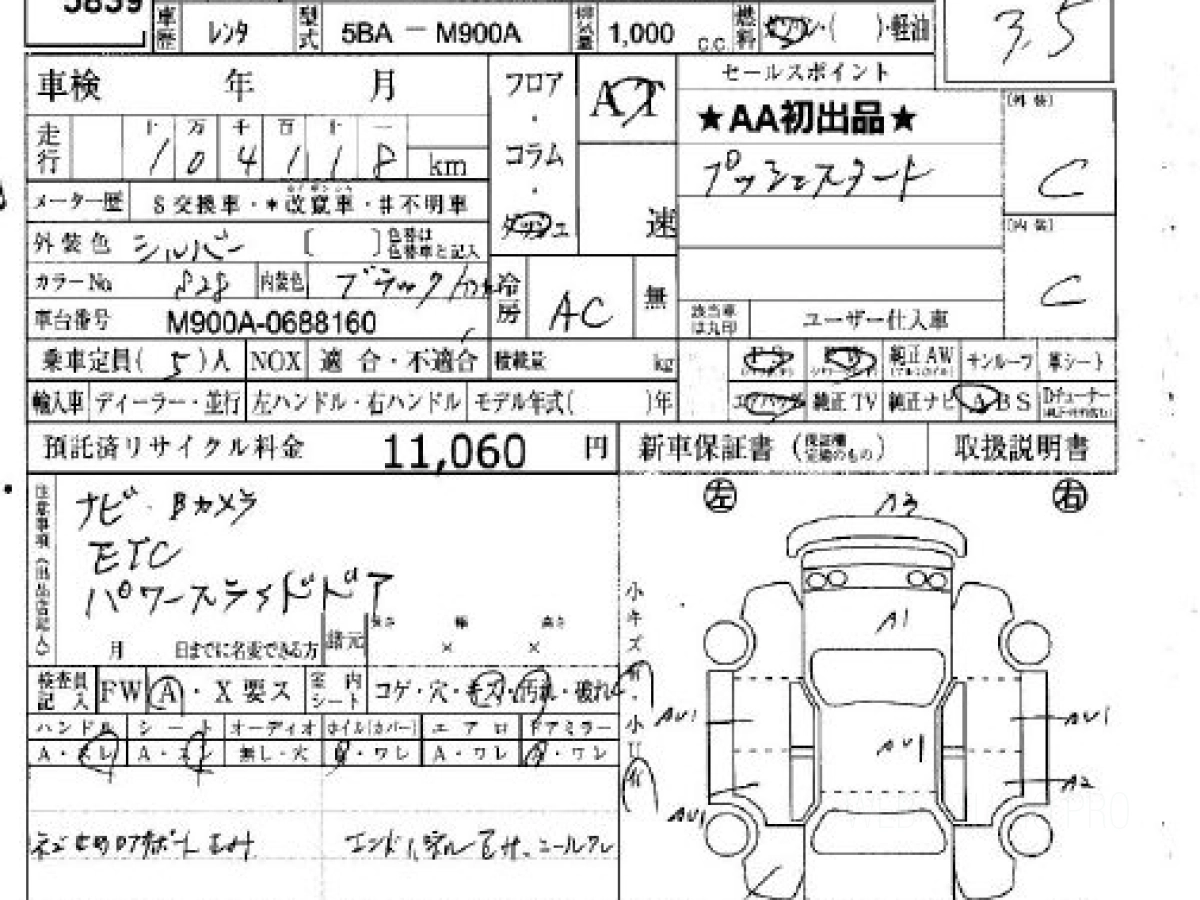 5839
車歴 レンタ 型式 5BA - M900A 排気量 1,000 C.C. 燃料 ガソリン・( )・軽油
3.5
車検 年 月
フロア・コラム・ダッシュ
AT
速
セールスポイント
★AA初出品★
プッシュスタート
(外装)
C
(内装)
C
走行 十 万 千 百 十 一
1 0 4 1 1 8 km
メーター歴 $交換車・*改竄車・#不明車
外装色 シルバー [ ] 色替は色替車と記入
カラーNo. 828 内装色 ブラック
冷房 AC 無
車台番号 M900A-0688160
該当車は丸印 ユーザー仕入車
乗車定員( 5 )人 NOX 適合・不適合 積載量 kg
PS PW 純正AW サンルーフ 革シート
輸入車 ディーラー・並行 左ハンドル・右ハンドル モデル年式( )年
エアバッグ 純正TV 純正ナビ ABS Dチューナー
預託済リサイクル料金 11,060 円
新車保証書 (保証欄完備のもの) 取扱説明書
注意事項(出品店記入)
ナビ・Bカメラ
ETC
パワースライドドア
月 日までに名変できる方 諸元 長さ × 幅 × 高さ
検査員記入 FW A・X要ス 室内シート コゲ・穴・キズ・汚れ・破れ
ハンドル シート オーディオ ホイル(カバー) エアロ ドアミラー
A・スレ A・スレ 無し・穴 キ・ワレ A・ワレ キ・ワレ
小キズ有・小U有
左 右
A3
A1
AU1 AU1 AU1
A2
AU1
PRO